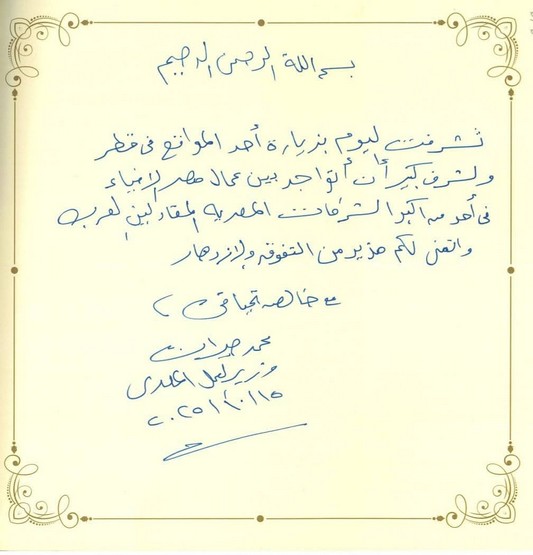 بسم الله الرحمن الرحيم
تشرفت ليوم بزيارة أحد المواقع فى قطر
ولشرف كبير أن أتواجد بين عمال مصر الاوفياء
فى أحد من اكبر الشركات المصريه المقاولين لعرب
واتمنى لكم مزيد من التفوق ولازدهار
مع خالص تحياتى
محمد جبران
وزير لعمل المصرى
٢٠٢٥/١٠/١٥